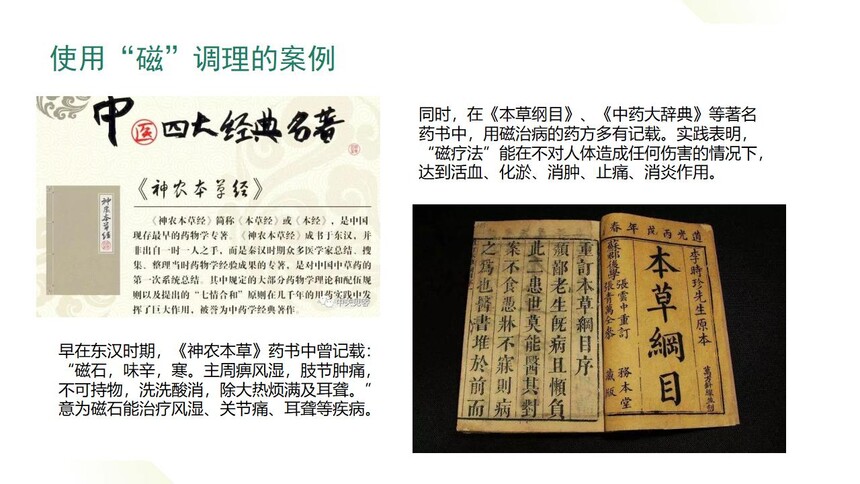 使用“磁”调理的案例
中医四大经典名著
《神农本草经》
《神农本草经》简称《本草经》或《本经》，是中国
现存最早的药物学专著。《神农本草经》成书于东汉，并
非出自一时一人之手，而是秦汉时期众多医学家总结、搜
集、整理当时药物学经验成果的专著，是对中国中草药的
第一次系统总结。其中规定的大部分药物学理论和配伍规
则以及提出的“七情合和”原则在几千年的用药实践中发
挥了巨大作用，被誉为中药学经典著作
神农本草经
早在东汉时期，《神农本草》药书中曾记载：
“磁石，味辛，寒。主周痹风湿，肢节肿痛，
不可持物，洗洗酸消，除大热烦满及耳聋。”
意为磁石能治疗风湿、关节痛、耳聋等疾病。
同时，在《本草纲目》、《中药大辞典》等著名
药书中，用磁治病的药方多有记载。实践表明，
“磁疗法”能在不对人体造成任何伤害的情况下，
达到活血、化淤、消肿、止痛、消炎作用。
道光丙戌年春
李時珍先生原本
本草綱目
張雲中重訂
務本堂
藏版
重訂本草綱目序
頻鄰老生旣病且懶負
此二患世莫能醫其對
案不食憑牀不寐則病
之爲也醫書堆於前而